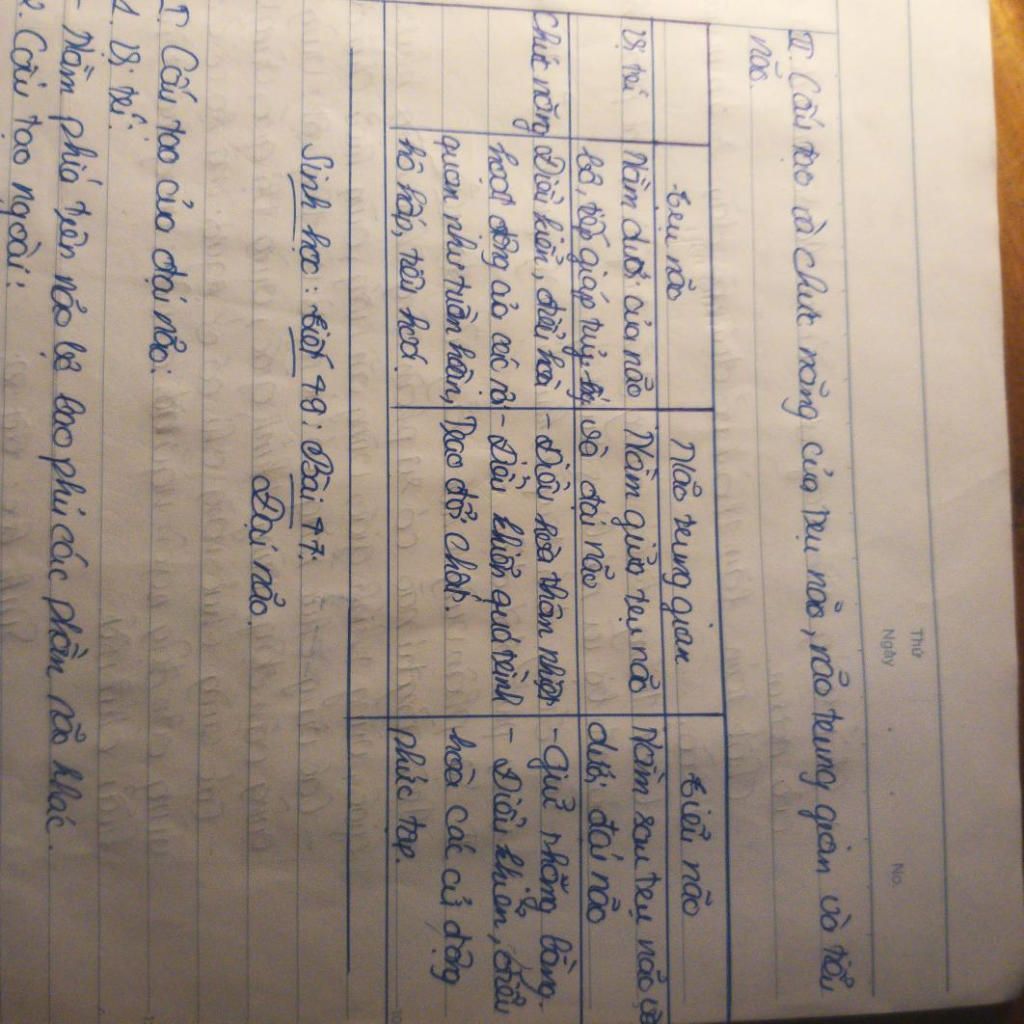 Thứ
Ngày
No.
II. Cấu tạo và chức năng của trụ não, não trung gian và tiểu
não.
trụ não
Não trung gian
tiểu não
Vị trí
Nằm dưới của não
bộ, tiếp giáp tuỷ
Nằm giữa trụ não
và đại não
Nằm sau trụ não và
dưới đại não
Chức năng
Điều khiển, điều hoà
hoạt động của các nội
quan như tuần hoàn,
hô hấp, tiêu hoá.
- Điều hoà thân nhiệt
- Điều khiển quá trình
Trao đổi chất.
- Giữ thăng bằng.
- Điều khiển, điều
hòa các cử động
phức tạp.
Sinh học: tiết 49: Bài 47:
Đại não.
I. Cấu tạo của đại não:
1. Vị trí:
- Nằm phía trên não bộ bao phủ các phần não khác.
2. Cấu tạo ngoài: